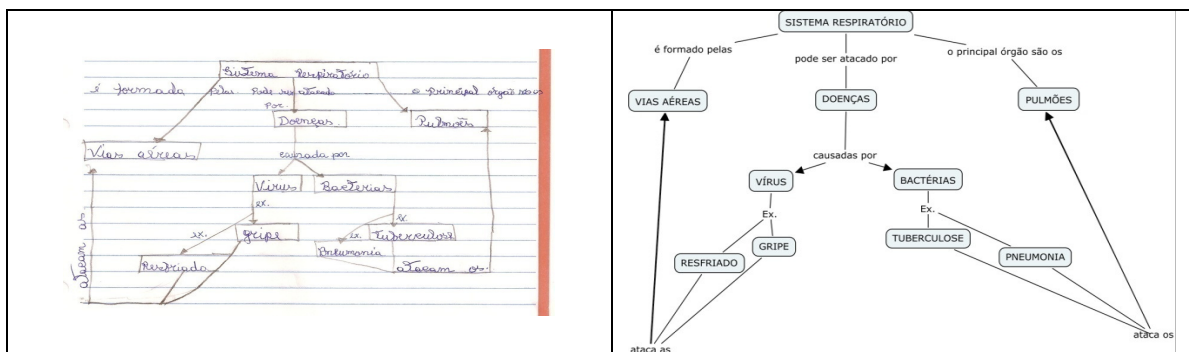 Sistema Respiratório
é formada pelas Pode ser atacado o principal órgão são os
por.
Doenças. Pulmões
Vias aéreas causada por
Vírus Bactérias
ex. ex.
ex. gripe ex. Tuberculose
Pneumonia
Resfriado atacam os.
atacam as
SISTEMA RESPIRATÓRIO
é formado pelas
pode ser atacado por
o principal órgão são os
VIAS AÉREAS DOENÇAS PULMÕES
causadas por
VÍRUS BACTÉRIAS
Ex. Ex.
TUBERCULOSE
GRIPE
RESFRIADO PNEUMONIA
ataca os
ataca as